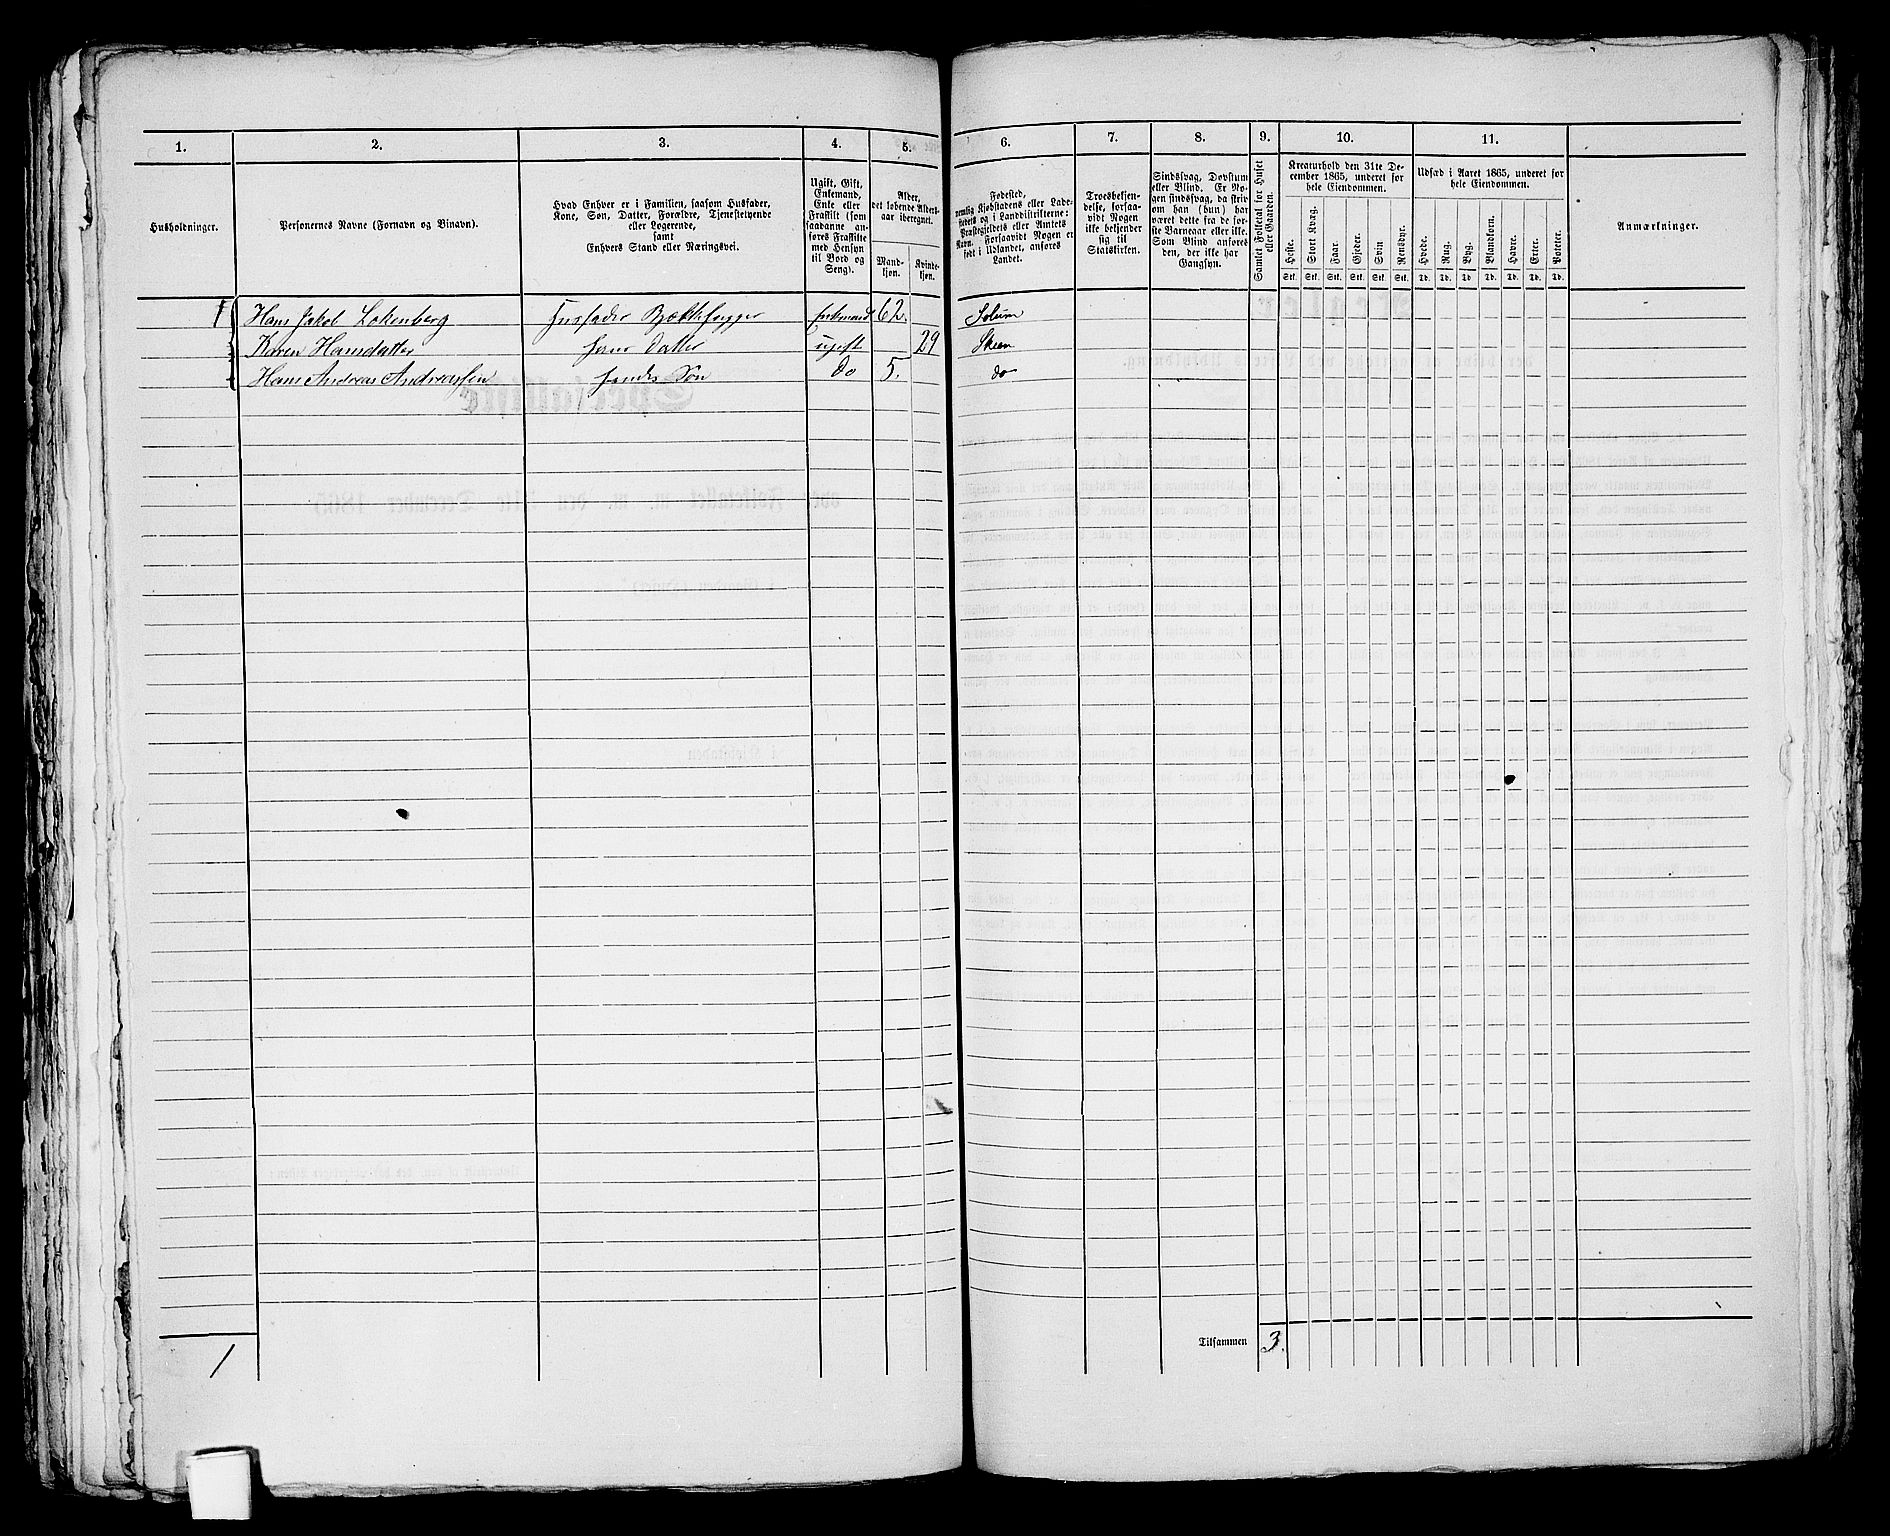 1. 2. 3. 4. 5. 6. 7. 8. 9. 10. 11.
Husholdninger.
Personernes Navne (Fornavn og Binavn).
Hvad Enhver er i Familien, saasom Husfader,
Kone, Søn, Datter, Forældre, Tjenestetyende
eller Logerende,
samt
Enhvers Stand eller Næringsvei.
Ugift, Gift,
Enkemand,
Enke eller
Fraskilt (som
saadanne an-
føres Fraskilte
med Hensyn
til Bord og
Seng).
Alder,
det løbende Alders-
aar iberegnet.
Mand-
kjøn.
Kvinde-
kjøn.
Fødested,
nemlig Kjøbstadens eller Lade-
stedets og i Landdistrikterne:
Præstegjeldets eller Amtets
Navn. Forsaavidt Nogen er
født i Udlandet, anføres
Landet.
Troesbekjen-
delse, forsaa-
vidt Nogen
ikke bekjender
sig til
Statskirken.
Sindssvag, Døvstum
eller Blind. Er No-
gen sindssvag, da skriv
om han (hun) har
været dette fra de før-
ste Barneaar eller ikke.
Som Blind anføres
den, der ikke har
Gangsyn.
Samlet Folketal for Huset
eller Gaarden.
Kreaturhold den 31te De-
cember 1865, underet for
hele Eiendommen.
Heste. Stort Kvæg. Faar. Gjeder. Svin Rensdyr.
Stk. Stk. Stk. Stk. Stk. Stk.
Udsæd i Aaret 1865, underet for
hele Eiendommen.
Hvede. Rug. Byg. Blandkorn. Havre. Erter. Poteter.
Td. Td. Td. Td. Td. Td. Td.
Anmærkninger.
1 Hans Jakob Lokenberg Husfader 62. Solum
Karen Hansdatter hans Datter ugift 29 Skien
Hans Andreas Andreassen hendes Søn do 5. do
Tilsammen 3.
1